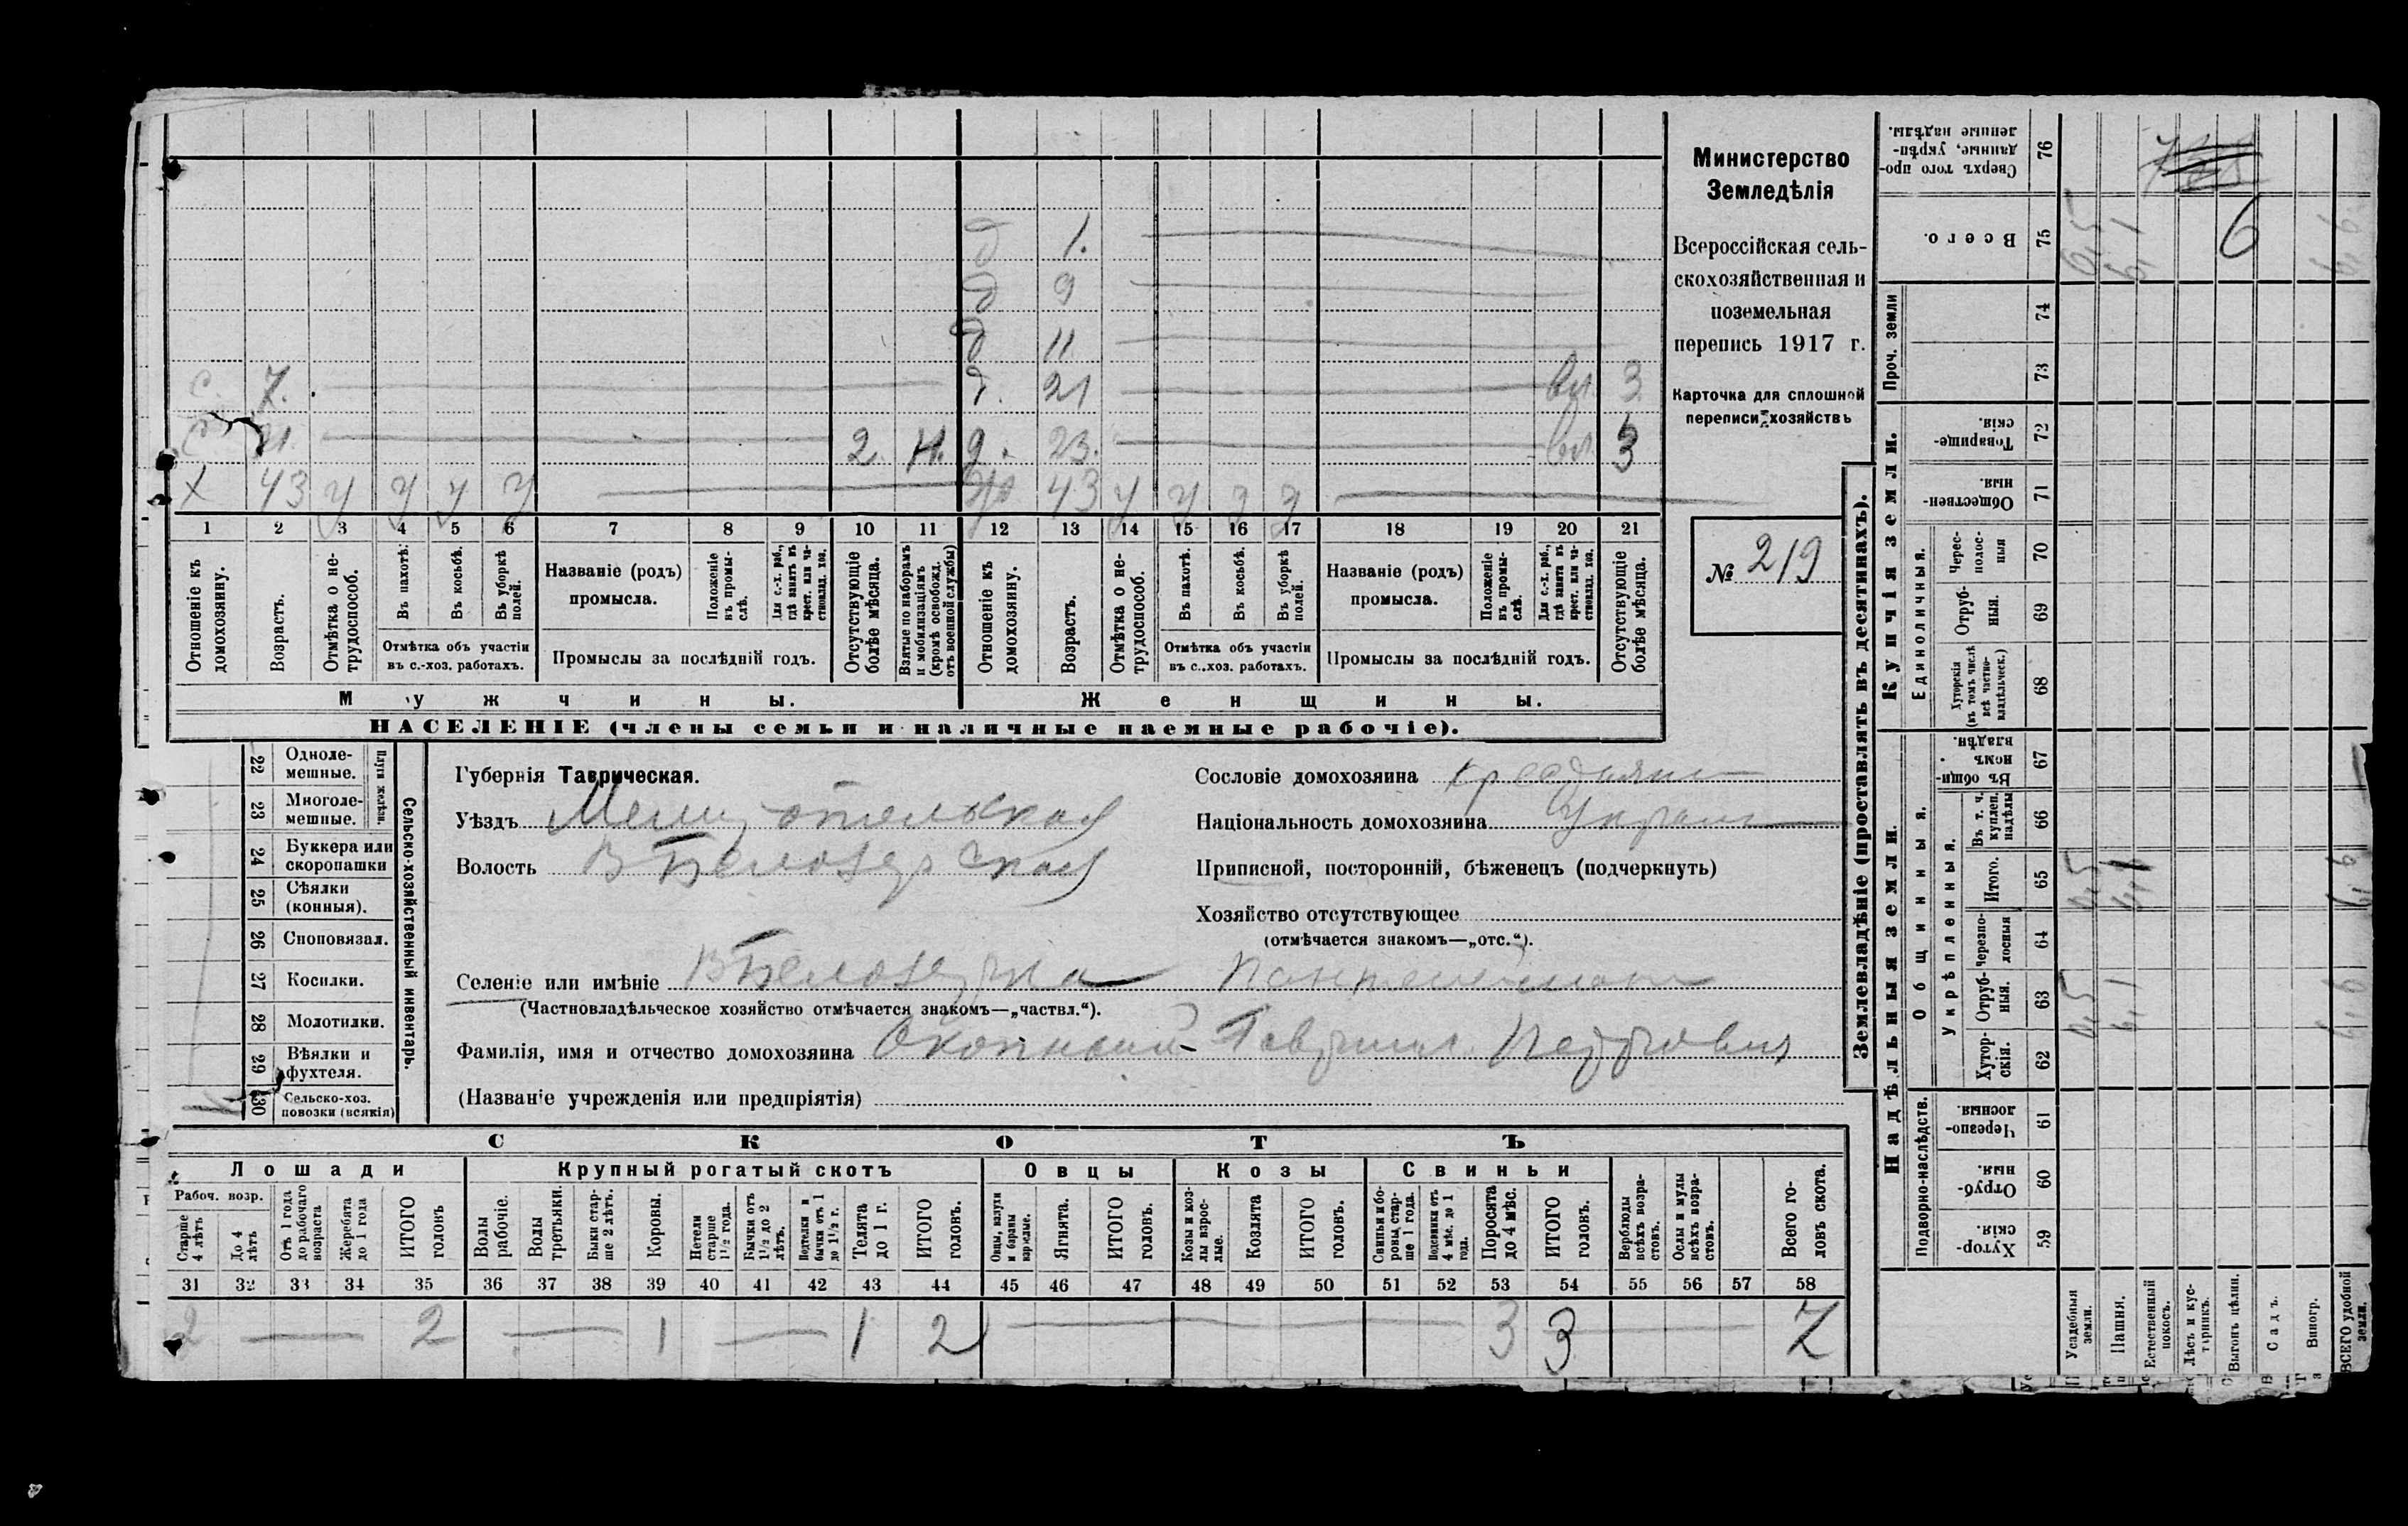 Министерство
Земледѣлія
Всероссійская сель-
скохозяйственная и
поземельная
перепись 1917 г.
Карточка для сплошной
переписи хозяйствъ
№ 219
д 1.
д 9
д 11
с. 7. д. 21 вл 3
с 21. 2 Н. д. 23. вл 3
Х 43 У У У У 43 У У У У
1 2 3 4 5 6 7 8 9 10 11 12 13 14 15 16 17 18 19 20 21
Отношеніе къ домохозяину.
Возрастъ.
Отмѣтка о не-трудоспособ.
Въ пахотѣ.
Въ косьбѣ.
Въ уборкѣ полей.
Отмѣтка объ участіи
въ с.-хоз. работахъ.
Названіе (родъ)
промысла.
Положеніе въ промы-слѣ.
Для с.-х. раб., гдѣ занятъ въ крест. или ча-стновлад. хоз.
Промыслы за послѣдній годъ.
Отсутствующіе болѣе мѣсяца.
Взятые по наборамъ и мобилизаціямъ (кромѣ освобожд. отъ военной службы)
Отношеніе къ домохозяину.
Возрастъ.
Отмѣтка о не-трудоспособ.
Въ пахотѣ.
Въ косьбѣ.
Въ уборкѣ полей.
Отмѣтка объ участіи
въ с.-хоз. работахъ.
Названіе (родъ)
промысла.
Положеніе въ промы-слѣ.
Для с.-х. раб., гдѣ занята въ крест. или ча-стновлад. хоз.
Промыслы за послѣдній годъ.
Отсутствующіе болѣе мѣсяца.
Мужчины.
Женщины.
НАСЕЛЕНІЕ (члены семьи и наличные наемные рабочіе).
Сельско-хозяйственный инвентарь.
Плуги желѣзн.
22 Одноле-мешные.
23 Многоле-мешные.
24 Буккера или скоропашки
25 Сѣялки (конныя).
26 Сноповязал.
27 Косилки.
28 Молотилки.
29 Вѣялки и фухтеля.
30 Сельско-хоз. повозки (всякія)
Губернія Таврическая.
Уѣздъ Мелитопольская
Волость В Белозерская
Селеніе или имѣніе В Белозерка
(Частновладѣльческое хозяйство отмѣчается знакомъ—„частвл.“).
Фамилія, имя и отчество домохозяина Окопный Гавриил Петрович
(Названіе учрежденія или предпріятія)
Сословіе домохозяина крестьянин
Національность домохозяина Украин
Приписной, посторонній, бѣженецъ (подчеркнуть)
Хозяйство отсутствующее
(отмѣчается знакомъ—„отс.“).
СКОТЪ
Лошади
Крупный рогатый скотъ
Овцы
Козы
Свиньи
Рабоч. возр.
Старше 4 лѣтъ
До 4 лѣтъ
Отъ 1 года до рабочаго возраста
Жеребята до 1 года
ИТОГО головъ
Волы рабочіе.
Волы третьяки.
Быки стар-ше 2 лѣтъ.
Коровы.
Нетели старше 1½ года.
Бычки отъ 1½ до 2 лѣтъ.
Подтелки и бычки отъ 1 до 1½ г.
Телята до 1 г.
ИТОГО головъ.
Овцы, валухи и бараны взрослые.
Ягнята.
ИТОГО головъ.
Козы и коз-лы взрос-лые.
Козлята
ИТОГО головъ.
Свиньи и бо-ровы стар-ше 1 года.
Подсвинки отъ 4 мѣс. до 1 года.
Поросята до 4 мѣс.
ИТОГО головъ.
Верблюды всѣхъ возра-стовъ.
Ослы и мулы всѣхъ возра-стовъ.
Всего го-ловъ скота.
31 32 33 34 35 36 37 38 39 40 41 42 43 44 45 46 47 48 49 50 51 52 53 54 55 56 57 58
2 2 1 1 2 3 3 7
Землевладѣніе (проставлять въ десятинахъ).
Надѣльныя земли.
Купчія земли.
Проч. земли
Подворно-наслѣдств.
Общинныя.
Укрѣпленныя.
Единоличныя.
Хутор-скія. 59
Отруб-ныя. 60
Черезпо-лосныя. 61
Хутор-скія. 62
Отруб-ныя. 63
Черезпо-лосныя 64
Итого. 65
Въ т. ч. куплен. надѣлы 66
Въ общин-номъ владѣн. 67
Хуторскія (въ томъ числѣ всѣ частно-владѣльческ.) 68
Отруб-ныя. 69
Черес-полос-ныя 70
Обществен-ныя. 71
Товарище-скія. 72
73
74
Всего. 75
Сверхъ того про-данные, укрѣп-ленные надѣлы. 76
6
Усадебныя земли.
Пашня.
Естественный покосъ.
Лѣсъ и кус-тарникъ.
Выгонъ цѣлин.
Садъ.
Виногр.
ВСЕГО удобной земли.